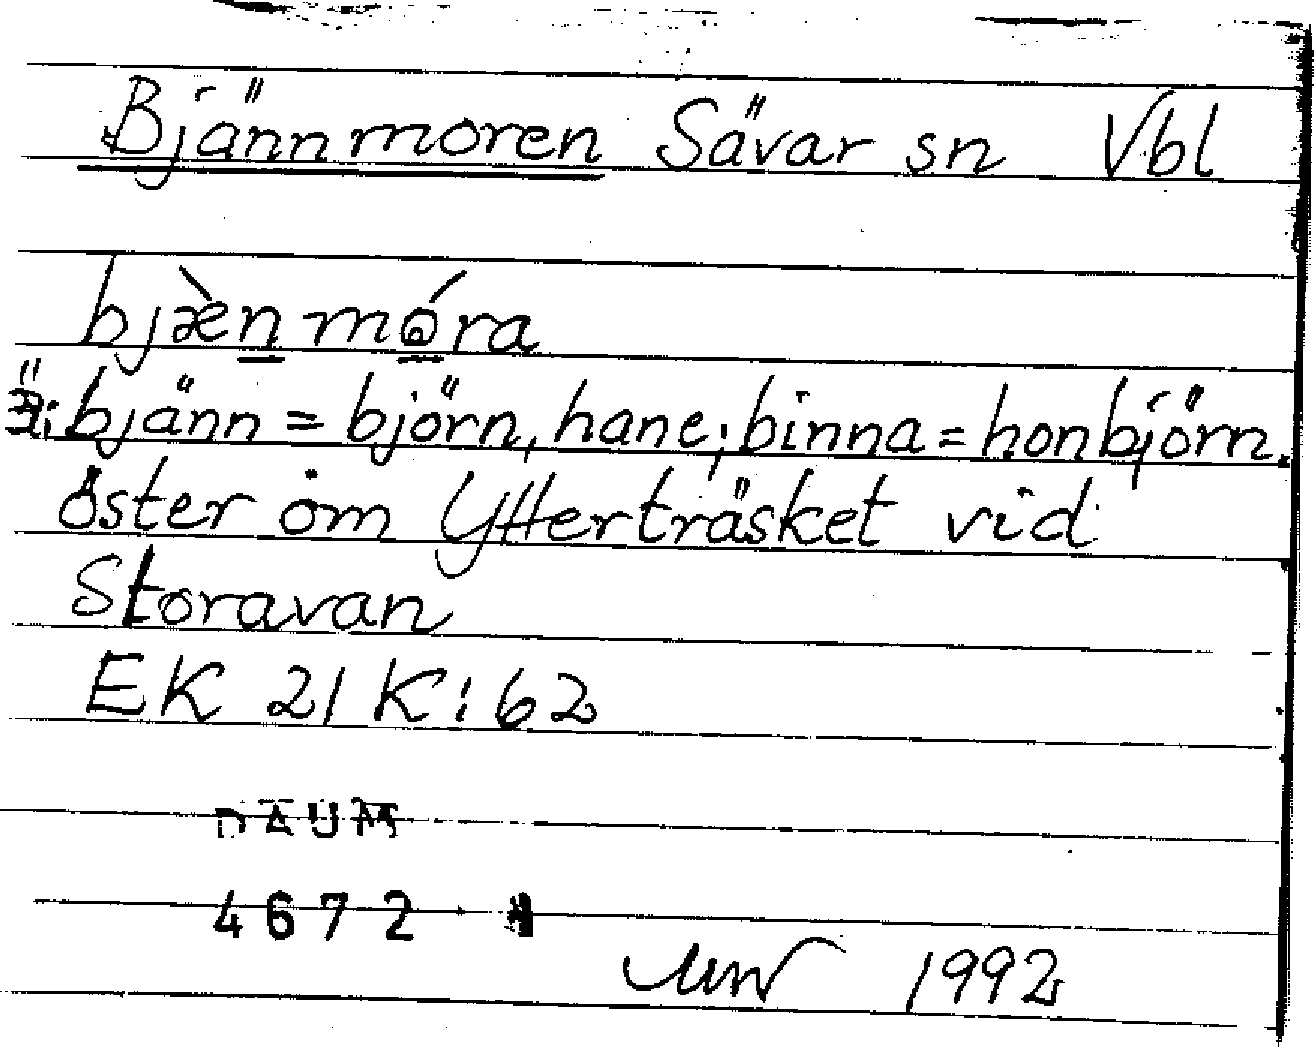 Bjännmoren Sävar sn Vbl
bjæ̀n̲mó̲ra
bjänn = björn, hane; binna = honbjörn.
öster om Ytterträsket vid
Storavan
EK 21 K:62
DAUM
4672
1992